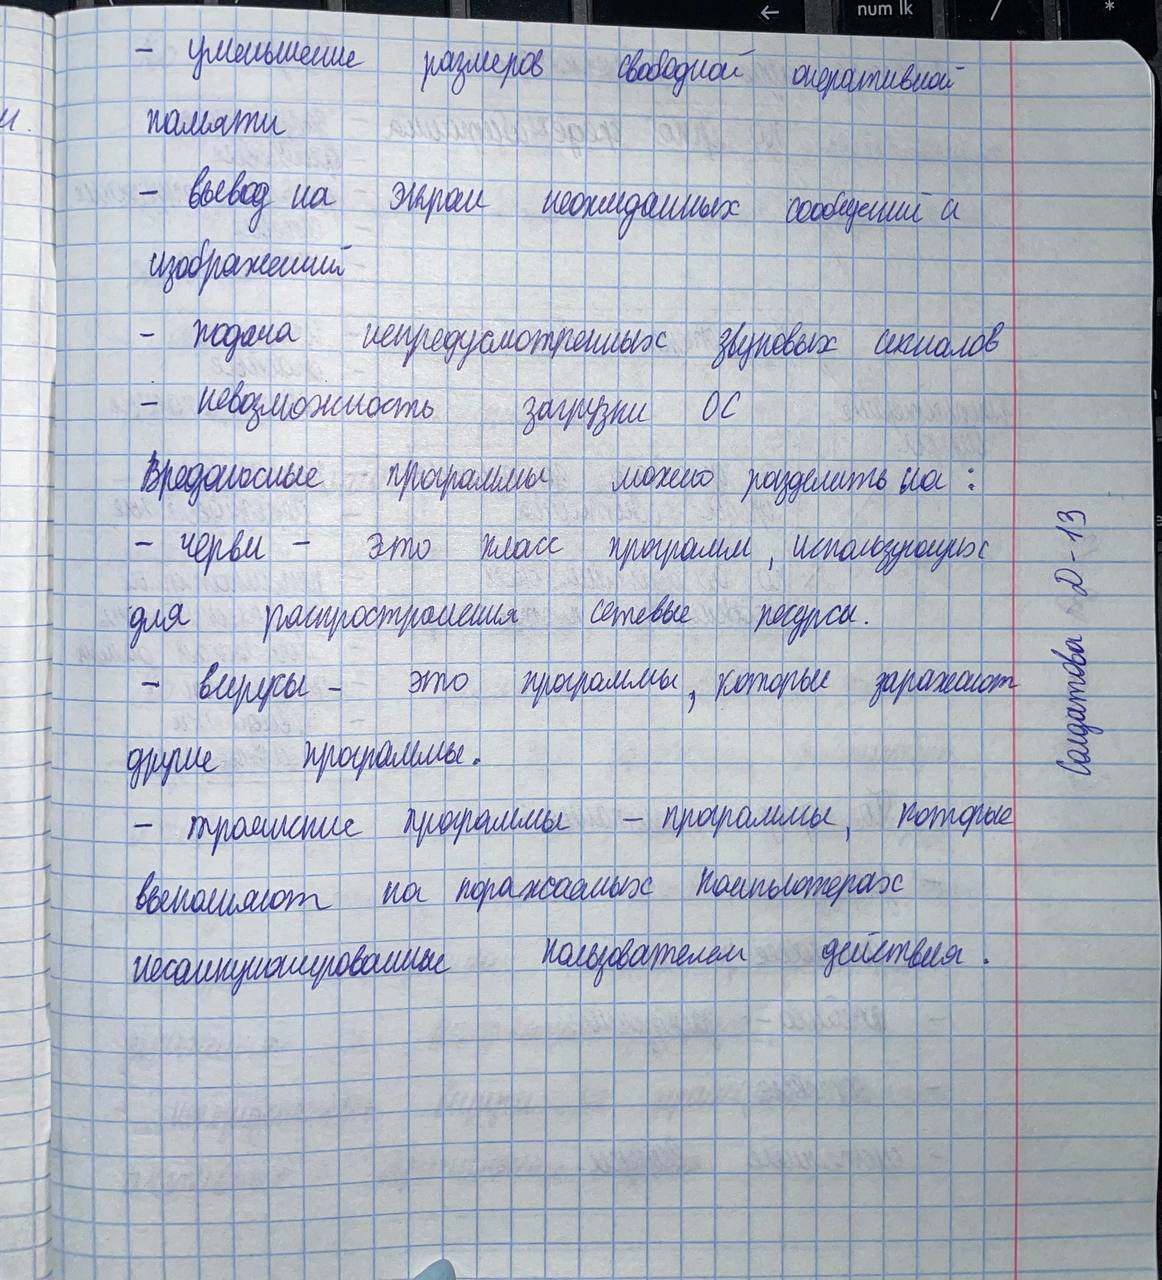 ←
num lk
/
*
и.
- уменьшение размеров свободной оперативной
памяти
- вывод на экран неожиданных сообщений и
изображений
- подача непредусмотренных звуковых сигналов
- невозможность загрузки ОС
Вредоносные программы можно разделить на:
- черви - это класс программ, использующих
для распространения сетевые ресурсы.
- вирусы - это программы, которые заражают
другие программы.
- троянские программы - программы, которые
выполняют на поражаемых компьютерах
несанкционированные пользователем действия.
Солдатова Д-13